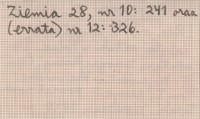 Ziemia 28, nr 10: 241 oraz
(errata) nr 12: 326.